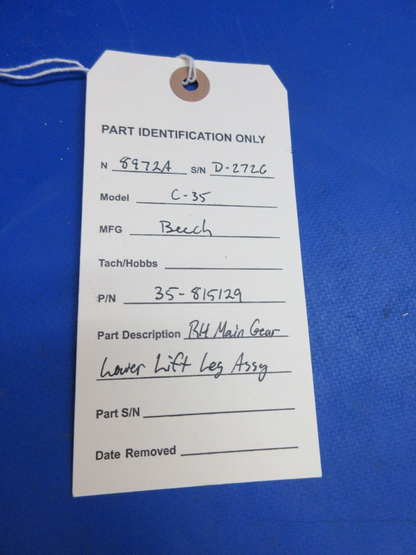 PART IDENTIFICATION ONLY
N 8972A S/N D-2726
Model C-35
MFG Beech
Tach/Hobbs
P/N 35-815129
Part Description RH Main Gear
Lower Lift Leg Assy
Part S/N
Date Removed